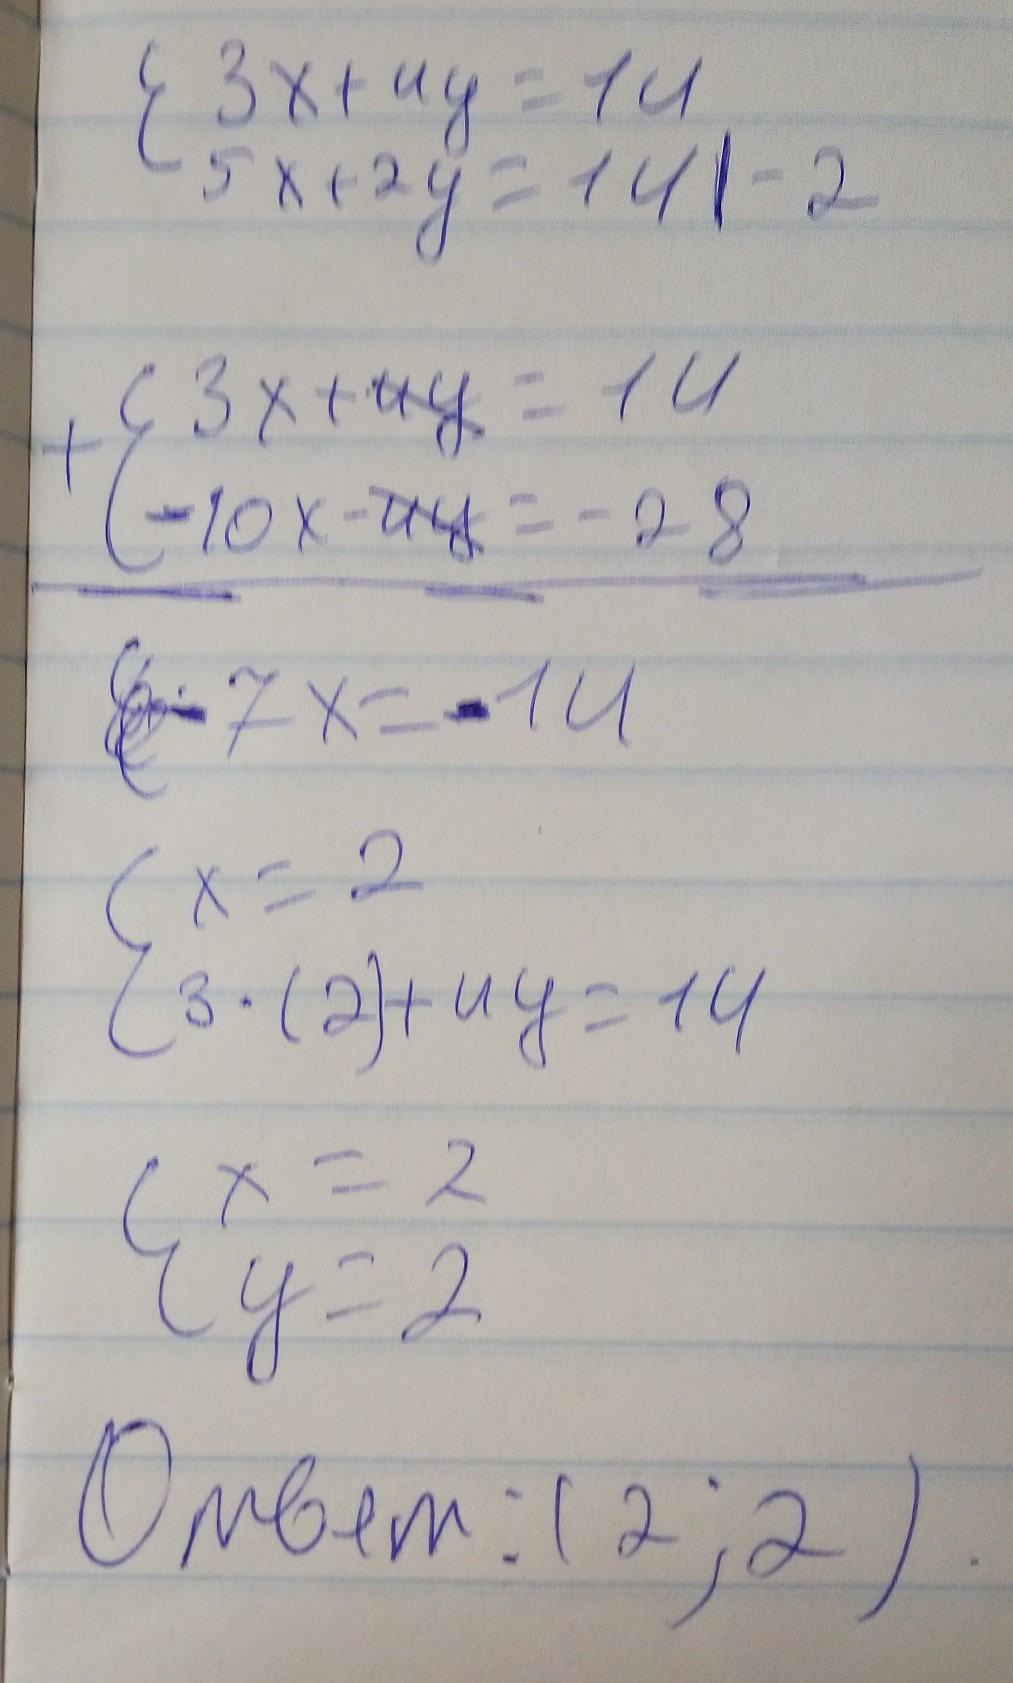 { 3x+4y=14
5x+2y=14 | -2
+ { 3x+4y=14
-10x-4y=-28
{ -7x=-14
{ x=2
3·(2)+4y=14
{ x=2
y=2
Ответ: (2;2).